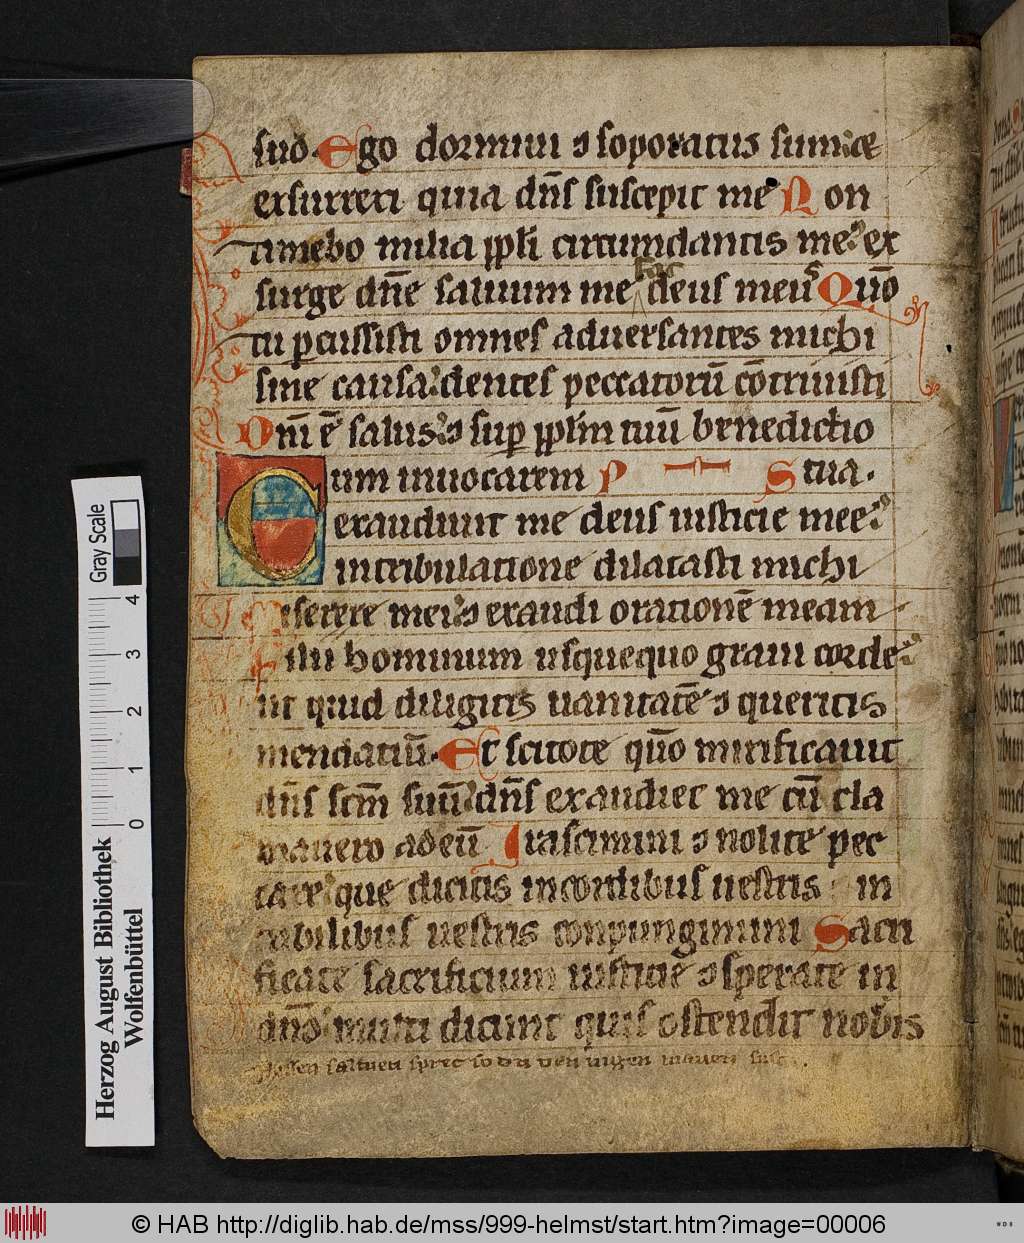 suo Ego dormiui ⁊ soporatus sum: ⁊
exsurrexi quia dñs suscepit me Non
timebo milia ppli circumdantis me: ex
surge dñe saluum me fac deus meus Qm̄o
tu ꝑcussisti omnes aduersantes michi
sine causa: dentes peccatorū cōtriuisti
Dn̄i ē salus: ⁊ suꝑ pplm tuū benedictio
Cum inuocarem P S tua.
exaudiuit me deus iusticie mee:
in tribulatione dilatasti michi
Miserere mei: ⁊ exaudi orationē meam
Filii hominum usquequo graui corde:
ut quid diligitis uanitatē ⁊ queritis
mendatiū. Et scitote qm̄o mirificauit
dñs scm̄ suū: dñs exaudiet me cū cla
mauero ad eū Irascimini ⁊ nolite pec
care: que dicitis in cordibus uestris in
cubilibus uestris conpungimini Sacri
ficate sacrificium iusticie ⁊ sperate in
dño: multi dicunt quis ostendit nobis
saltuen
Gray Scale
4
3
2
1
0
Herzog August Bibliothek
Wolfenbüttel
© HAB http://diglib.hab.de/mss/999-helmst/start.htm?image=00006